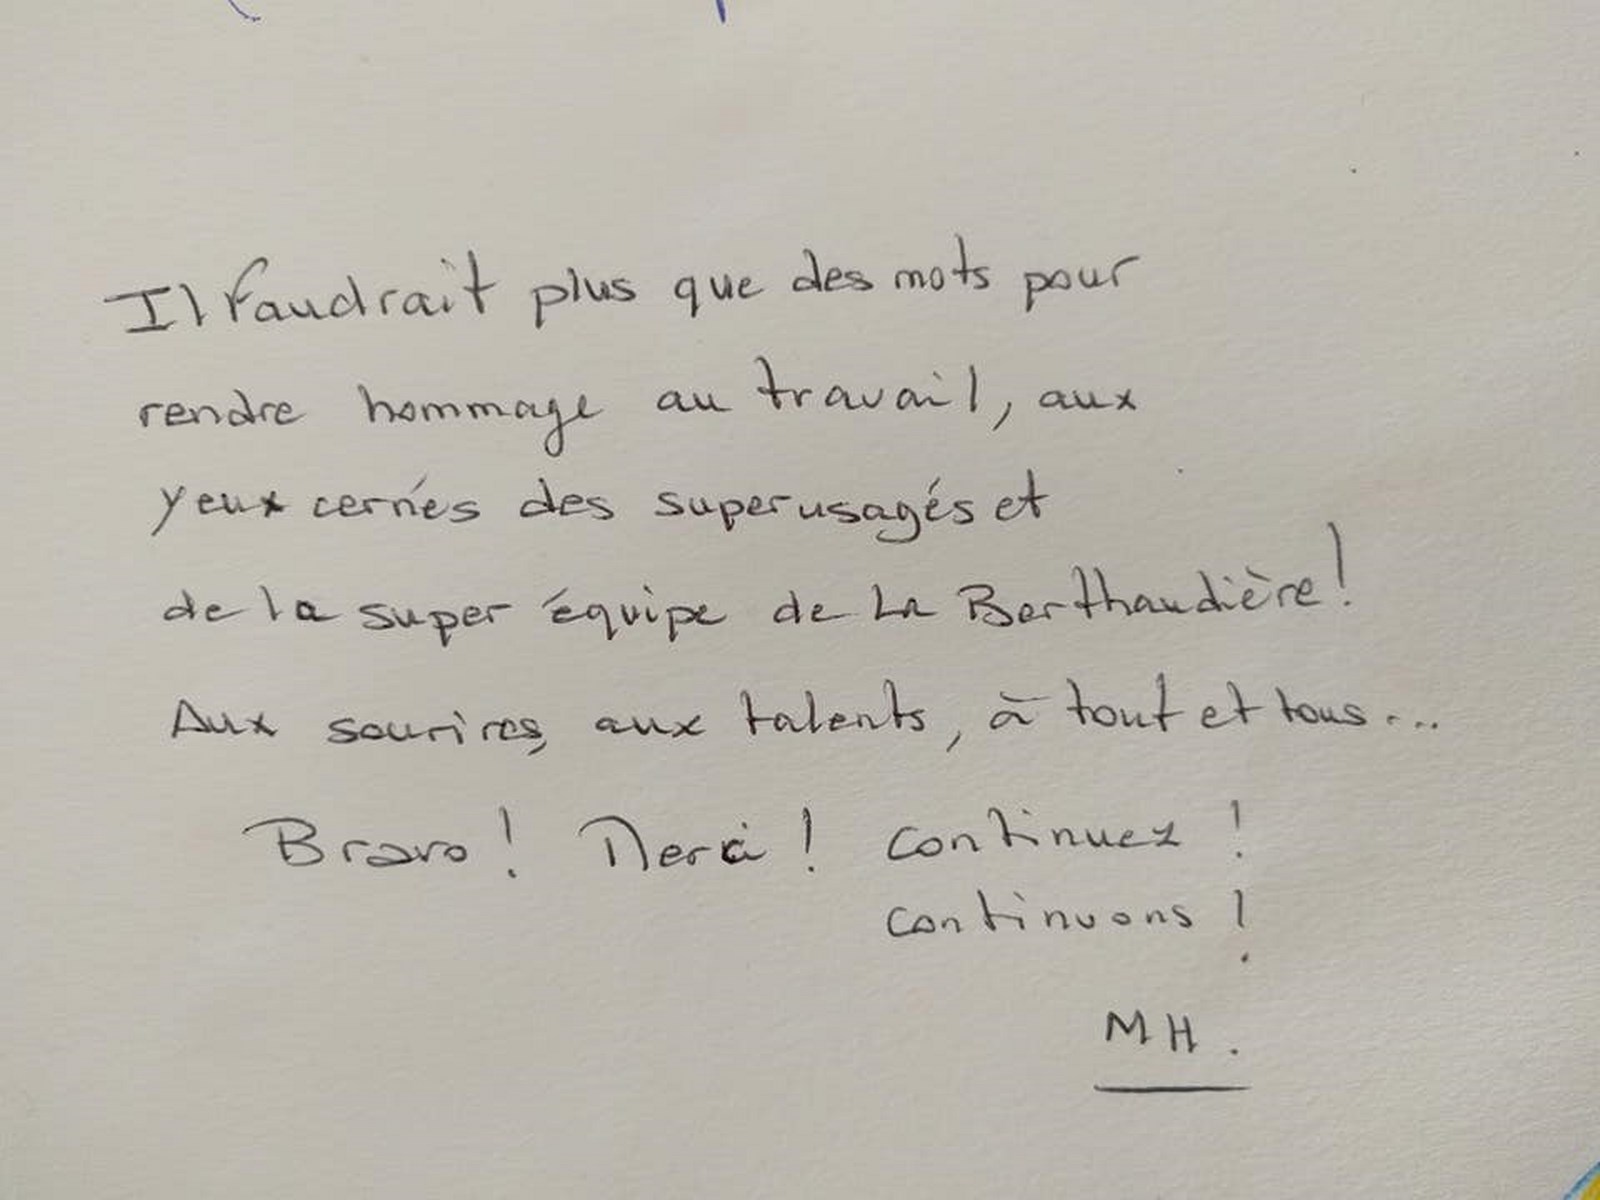 Il faudrait plus que des mots pour
rendre hommage au travail, aux
yeux cernés des superusagés et
de la super équipe de La Berthaudière!
Aux sourires, aux talents, à tout et tous...
Bravo! Merci! continuez!
continuons!
MH.